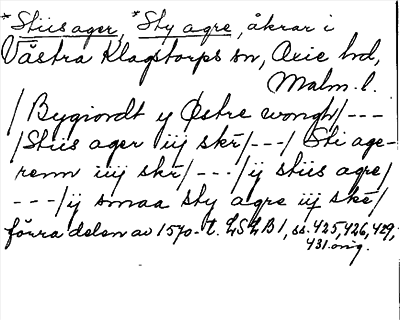 *Stiis ager, *Sty agre, åkrar i
Västra Klagstorps sn, Oxie hd,
Malm. l.
/Bygiordt y Østre wongh/---
/Stiis ager iij skr/---/ Sti age-
renn iiij skr/---/ij stiis agre/
---/ij smaa sty agre iij skr/
förra delen av 1570-t. LSLB 1, ss. 425, 426, 429,
431. orig.